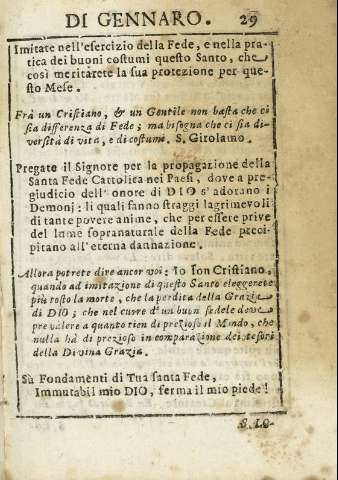 DI GENNARO. 29
Imitate nell'esercizio della Fede, e nella pra-
tica dei buoni costumi questo Santo, che
così meritarete la sua protezione per que-
sto Mese.
Frà un Cristiano, & un Gentile non basta che ci
sia differenza di Fede; ma bisogna che ci sia di-
versità di vita, e di costume. S. Girolamo.
Pregate il Signore per la propagazione della
Santa Fede Cattolica nei Paesi, dove a pre-
giudicio dell'onore di DIO s'adorano i
Demonj: li quali fanno straggi lagrimevoli
di tante povere anime, che per essere prive
del lume sopranaturale della Fede preci-
pitano all'eterna dannazione.
Allora potrete dire ancor voi: Io son Cristiano,
quando ad imitazione di questo Santo eleggerete
più tosto la morte, che la perdita della Grazia
di DIO; che nel cuore d'un buon fedele deve
prevalere a quanto tien di prezioso il Mondo, che
nulla hà di prezioso in comparazione dei tesori
della Divina Grazia.
Sù Fondamenti di Tua santa Fede,
Immutabil mio DIO, ferma il mio piede!